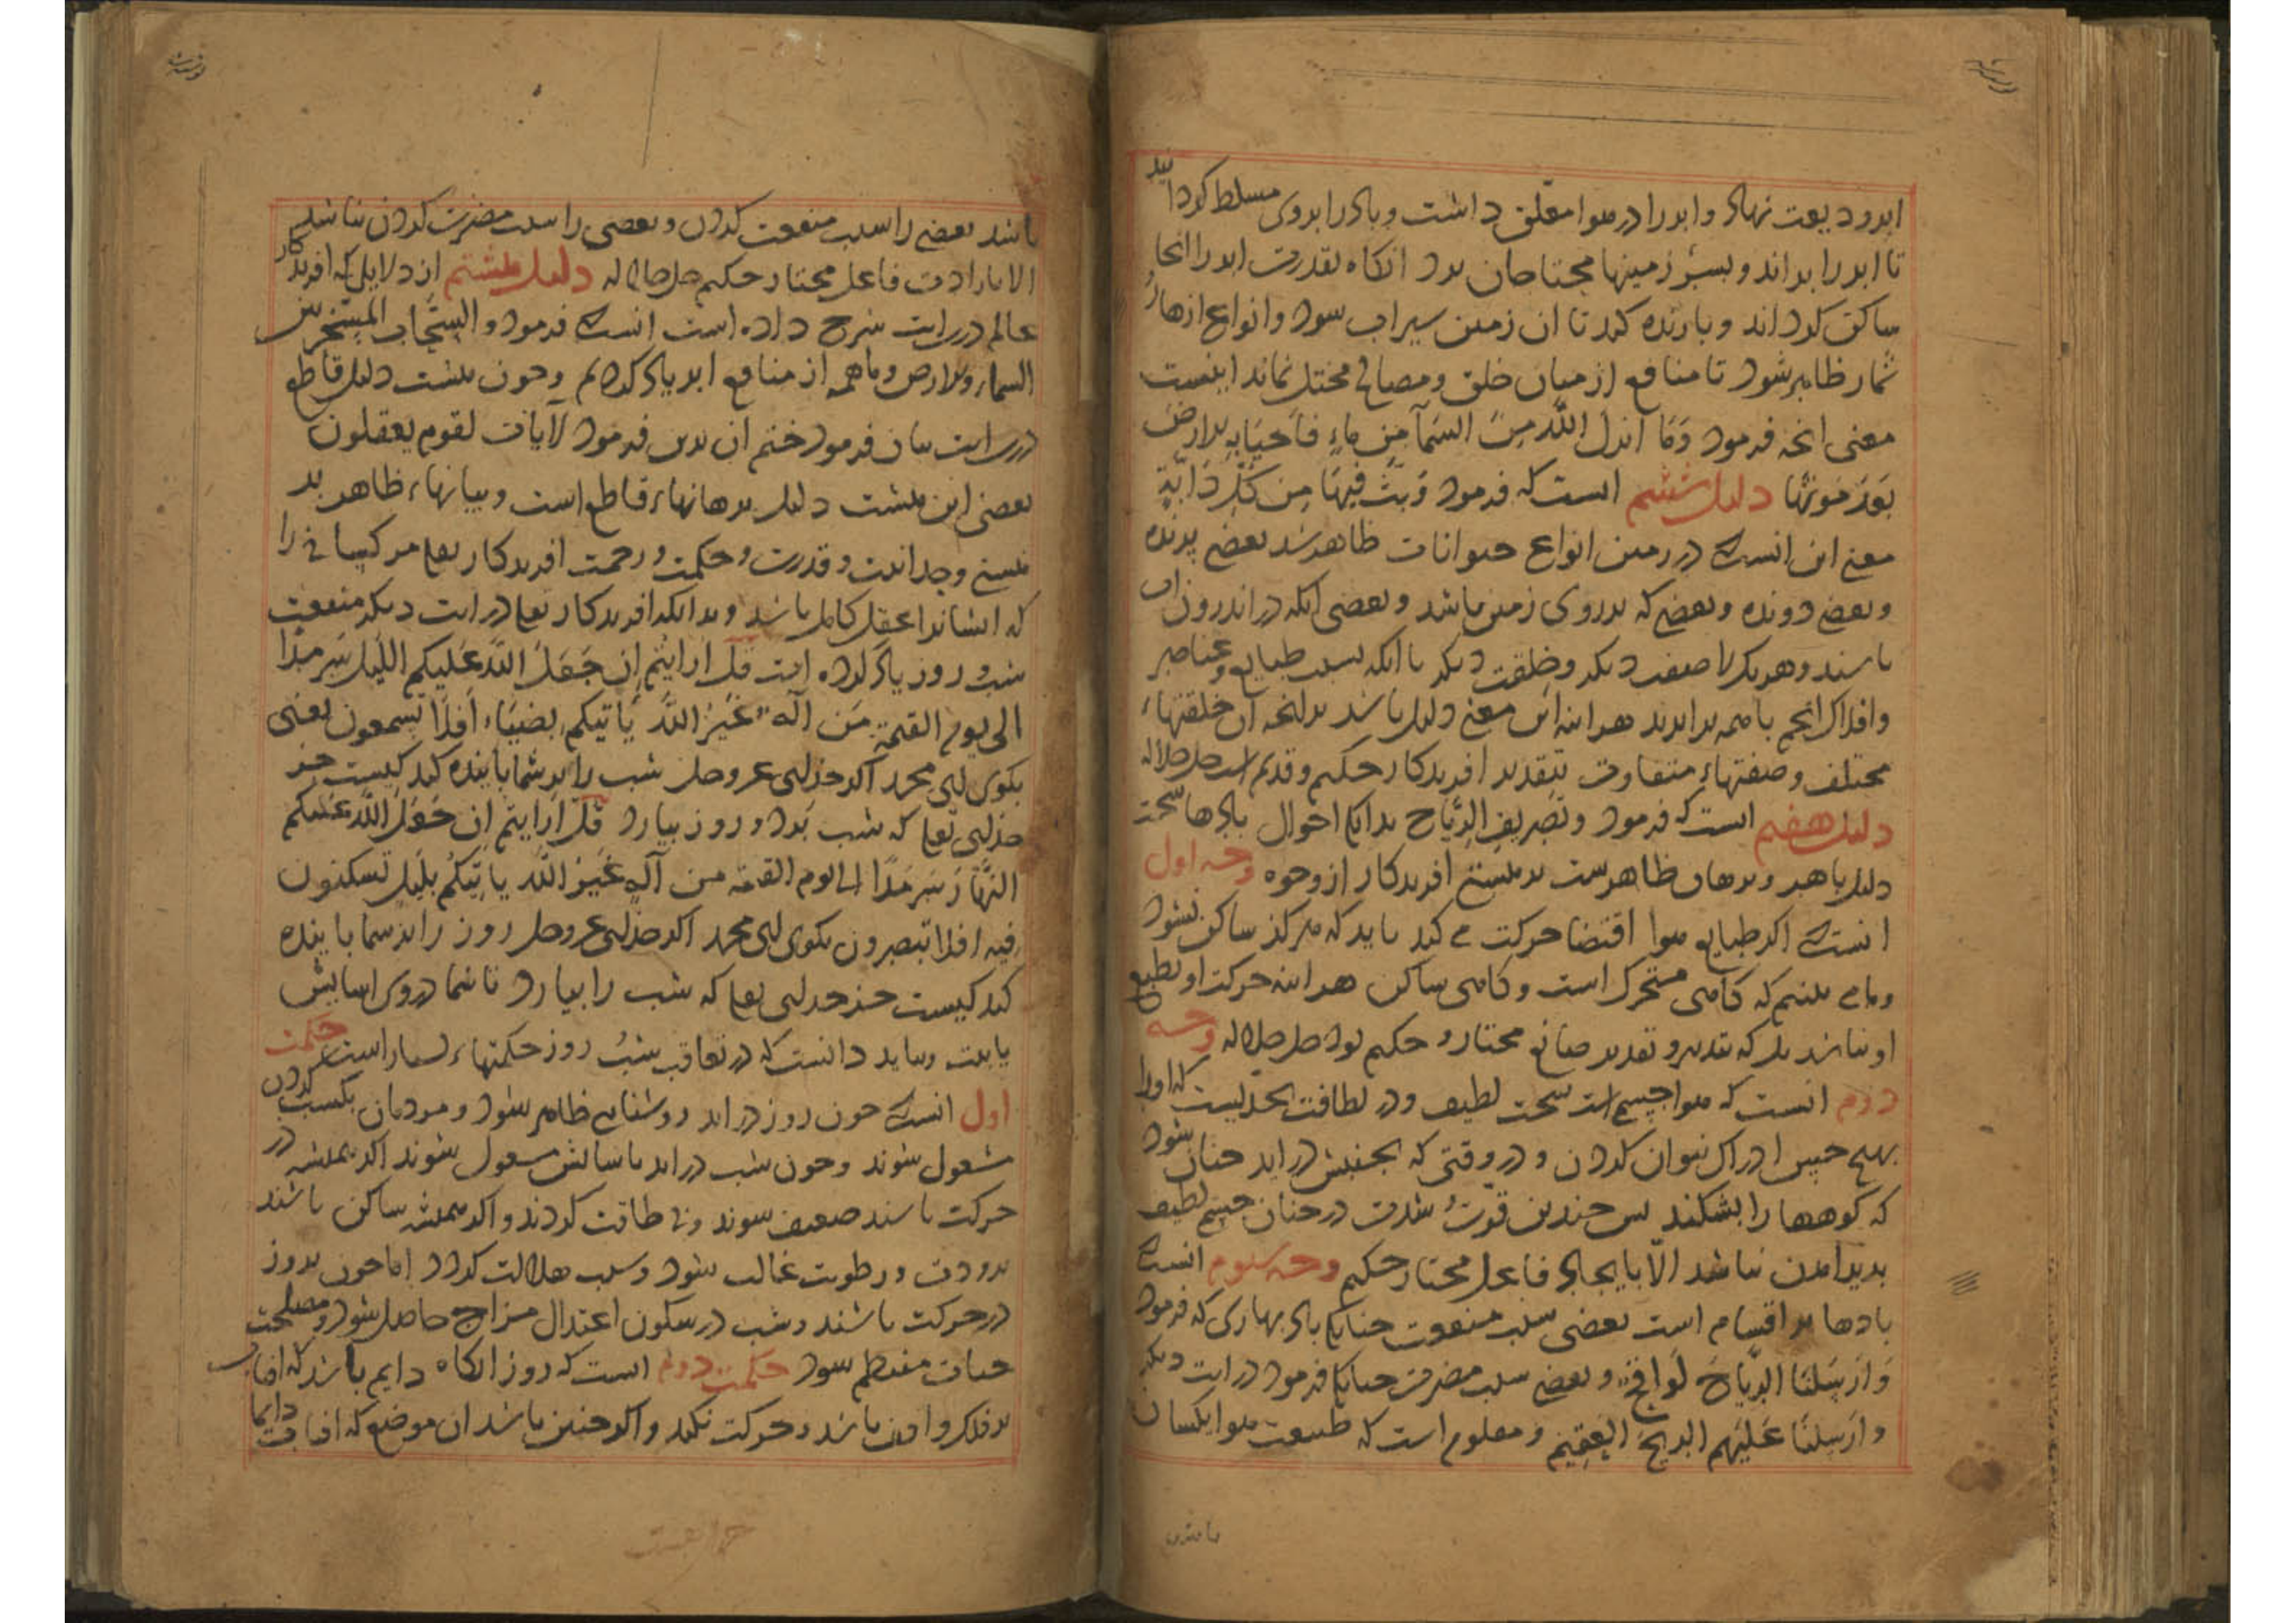 ابر ودیعت نهاد و ابر را در هوا معلق داشت و باد را بر وی مسلط کردانید
تا ابر را براند و بسر زمینها محتاجان برد انکاه بقدرت ابر را انجا
ساکن کرداند و بارنده کند تا ان زمین سیراب شود و انواع ازهار و
ثمار ظاهر شود تا منافع از میان خلق و مصالح مختل نماند اینست
معنی انچه فرمود وَمَا انزل اللّه مِنَ السَمآءِ مِن ماءٍ فاَحیَا بِه الارضَ
بَعدَ مَوتِهَا دلیل ششم انست که فرمود وَبَثَّ فِیهَا مِن کُلِّ دَابّةٍ
معنی این انست که در زمین انواع حیوانات ظاهر شد بعضی پرنده
و بعضی دونده و بعضی که بر روی زمین باشد و بعضی انکه در اندرون اب
باشند و هر یکی را صفت دیکر و خلقت دیکر با انکه بسبب طبایع و عناصر
و افلاک انجم با همه برابرند هراینه این معنی دلیل باشد بر انچه ان خلقتهاء
مختلف و صفتهاء متفاوت بتقدیر افریدکار حکیم و قدیم است جل جلاله
دلیل هفتم انست که فرمود و تصریف الرِّیاح بدانک احوال بادها سخت
دلیل باهر و برهان ظاهرست بر هستی افریدکار از وجوه وجه اول
انست که اکر طبایع هوا اقتضا حرکت می کند باید که هرکز ساکن نشود
و ما می بینیم که کاهی متحرک است و کاهی ساکن هراینه حرکت او بطبع
او نباشد بل که بتدبیر و تقدیر صانع مختار و حکیم بود جل جلاله وجه
دوم انست که هوا جسمی است سخت لطیف و در لطافت بحدیست که او را
بهیچ حس ادراک نتوان کردن و در وقتی که بجنبش در اید چنان شود
که کوهها را بشکند پس چندین قوت و شدت در چنان جسم لطیف
پدید امدن نباشد الا بایجاد فاعل مختار حکیم وجه سوم انست که
بادها بر اقسام است بعضی سبب منفعت چنانک باد بهاری که فرمود
وَ اَرسَلنَا الرِّیَاحَ لَوَاقِحَ و بعضی سبب مضرت چنانک فرمود در ایت دیکر
و ارسَلنَا عَلَیهم الریحَ العَقِیمَ و معلوم است که طبیعت هوا یکسان
باشد بعضی را سبب منفعت کردن و بعضی را سبب مضرت کردن نباشد
الا بارادت فاعل مختار حکیم جل جلاله دلیل هشتم از دلایل که افریدکار
عالم در این ایت شرح داده است انست که فرمود و السَّحَاب المسَخَّر بین
السماء والارض و ما همه از منافع ابر یاد کردیم و چون هشت دلیل قاطع
در این ایت بیان فرمود ختم ان بدین فرمود لآیات لقوم یعقلون
یعنی این هشت دلیل برهانهاء قاطع است و بیانهاء ظاهر بر
هستی وحدانیت و قدرت و حکمت و رحمت افریدکار تعالی مر کسانی را
که ایشانرا عقل کامل باشد و بدانکه افریدکار تعالی در ایت دیکر منفعت
شب و روز یاد کرده است قُل اَرَایتُم اِن جَعَلَ اللّه عَلیکم اللَّیل سَرمَدًا
الی یوم القیمة مَن اله غَیرُ اللّه یَاتیکم بِضِیَاءٍ اَفَلَا تسمعون یعنی
بکوی ای محمد اکر خدای عز و جل شب را بر شما پاینده کند کیست جز
خدای تعالی که شب برد و روز بیارد قُل اَرَایتُم اِن جَعَلَ اللّه عَلَیکم
النَّهَارَ سَرمَدًا الی یوم القیمة من اله غَیرُ اللّه یَاتیکُم بلَیلٍ تسکنون
فیه افلا تبصرون بکوی ای محمد اکر خدای عز و جل روز را بر شما پاینده
کند کیست جز خدای تعالی که شب را بیارد تا شما در وی اسایش
یابیت و بباید دانست که در تعاقب شب و روز حکمتهاء بسیار است حکمت
اول انست که چون روز در اید روشنایی ظاهر شود و مردمان بکسب کردن
مشغول شوند و چون شب در اید باسایش مشغول شوند اکر همیشه در
حرکت باشند ضعیف شوند و بی طاقت کردند و اکر همیشه ساکن باشند
برودت و رطوبت غالب شود و سبب هلاکت کردد اما چون بروز
در حرکت باشند و شب در سکون اعتدال مزاج حاصل شود و مصلحت
حیات منتظم شود حکمت دوم انست که روز انکاه دایم باشد که افتاب
بر فلک واقف باشد و حرکت نکند و اکر چنین باشد ان موضع که افتاب دایما